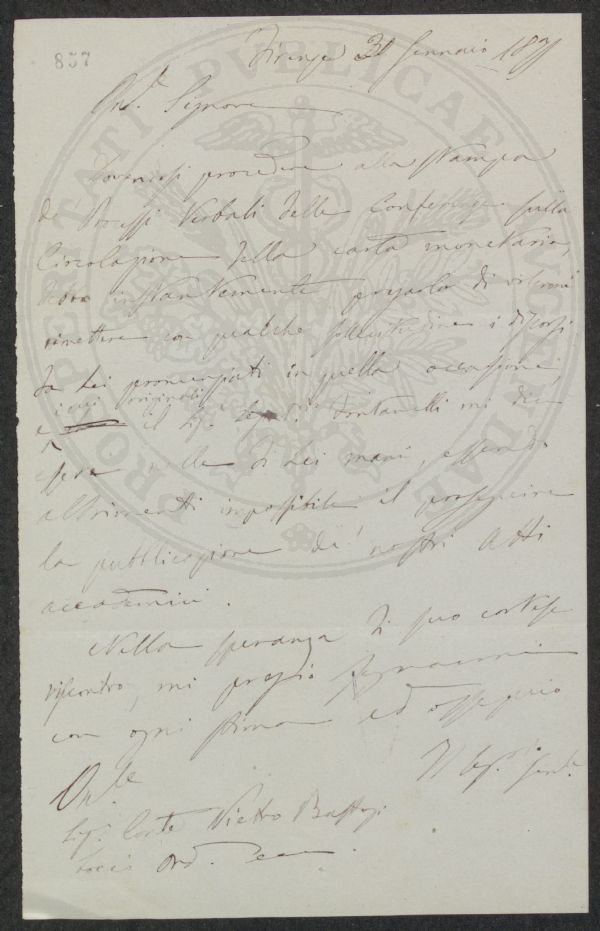 857
Firenze 31 Gennaio 1871
On.le Signore
Dovendosi procedere alla stampa
de' Processi Verbali delle Conferenze sulla
Circolazione della carta monetaria,
debbo instantemente pregarla di volermi
rimettere con qualche sollecitudine i discorsi
da Lei pronunziati in quella occasione,
i cui originali
e il Sig. Fontanelli mi dice
essere nelle di Lei mani, essendo
altrimenti impossibile il proseguire
la pubblicazione de' nostri Atti
accademici.
Nella speranza di suo cortese
riscontro, mi pregio segnarmi
con ogni stima ed ossequio
Il Seg.rio
On.le
Sig. Conte Pietro Bastogi
Socio Ord.
PROSPERITATI PUBLICAE AUGENDAE